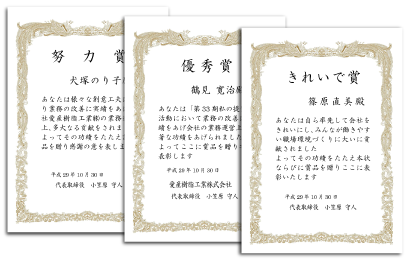 努力賞
犬塚のり子
あなたは様々な創意工夫
り業務の改善に実績をあ
社愛産樹脂工業㈱の業務
上、多大なる貢献をされま
よってその功績をたたえ
品を贈り感謝の意を表しま
平成29年10月30日
代表取締役 小笠原 守人
優秀賞
鶴見 寛治殿
あなたは「第33期私の提
活動において業務の改善
績をあげ会社の業務運営
著な功績をあげられました
よってここに賞品を贈り
表彰します
平成29年10月30日
愛産樹脂工業株式会社
代表取締役 小笠原 守人
きれいで賞
篠原直美殿
あなたは自ら率先して会社を
きれいにし、みんなが働きやす
い職場環境づくりに大いに貢
献されました
よってその功績をたたえ本状
ならびに賞品を贈りここに表
彰いたします
平成29年10月30日
代表取締役 小笠原 守人